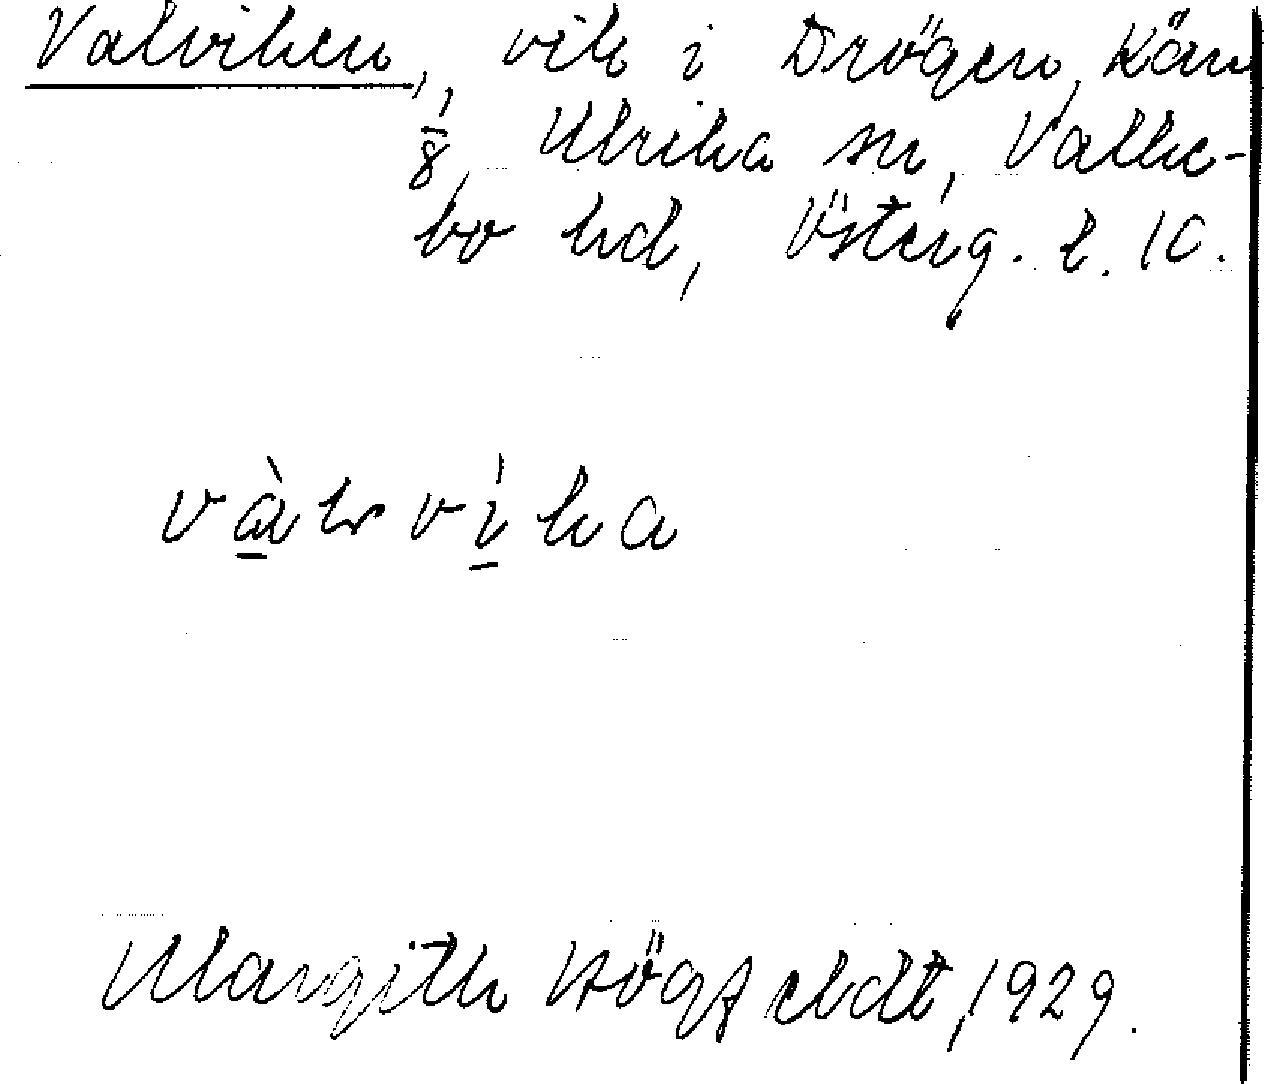 Valviken, vik i Drögen, Kärn
1/8, Ulrika sn, Valke-
bo hd, Österg. l. 10.
vàlvíka
Margith Högfeldt, 1929.